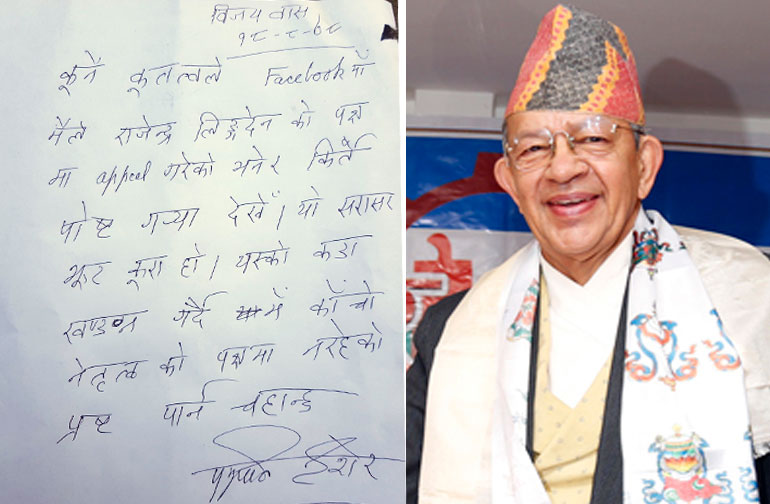 विजय वास
१८-८-७८
कुनै कुतत्वले Facebook माँ
मैले राजेन्द्र लिङ्गदेन को पक्ष
मा appeal गरेको भनेर किर्ते
पोष्ट गर्‍या देखेँ। यो सरासर
झूट कूरा हो। यस्को कडा
खण्डन गर्दै में काँचो
नेतृत्व को पक्षमा नरहेको
प्रष्ट पार्न चहान्छु